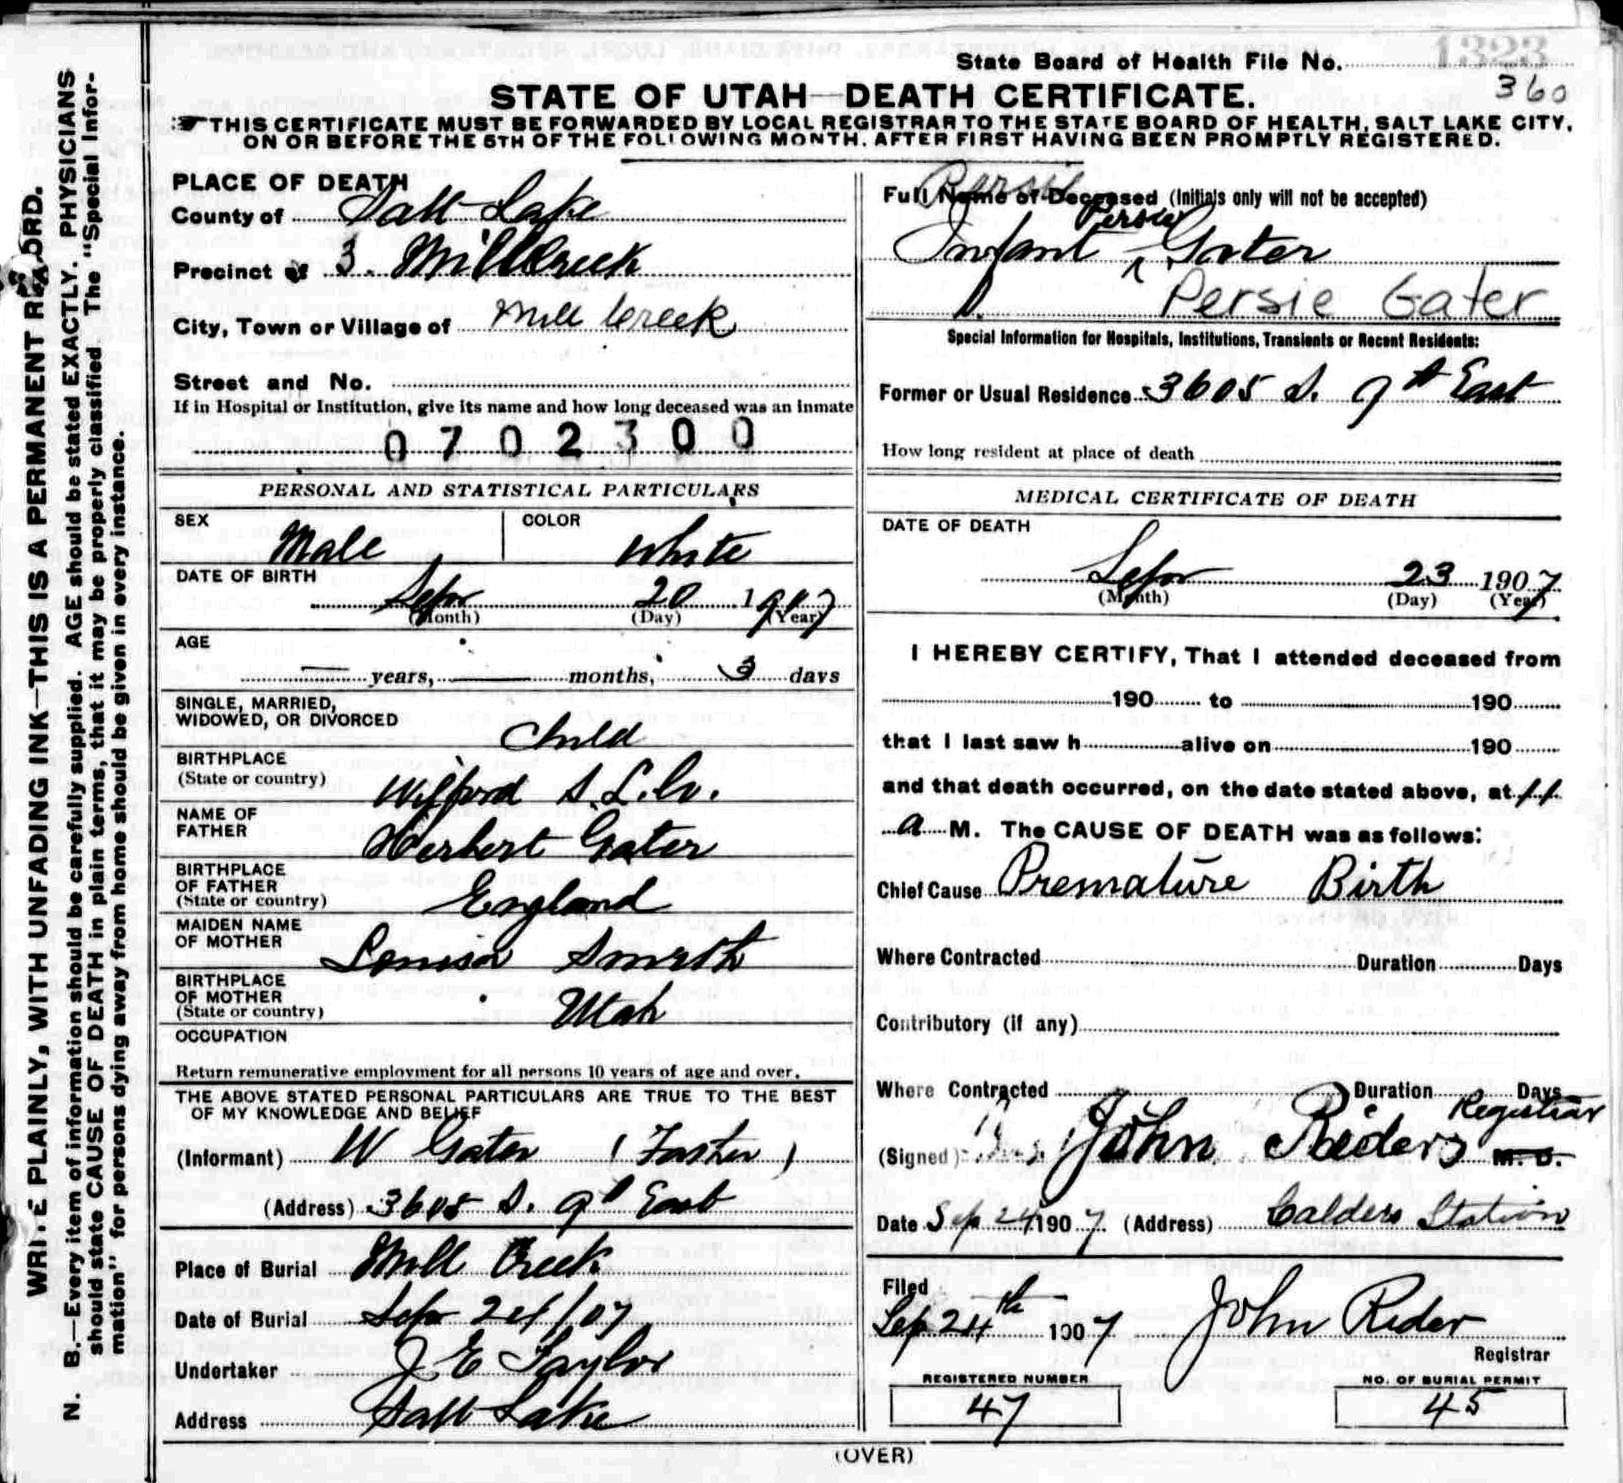 1323
State Board of Health File No.
360
STATE OF UTAH—DEATH CERTIFICATE.
THIS CERTIFICATE MUST BE FORWARDED BY LOCAL REGISTRAR TO THE STATE BOARD OF HEALTH, SALT LAKE CITY,
ON OR BEFORE THE 5TH OF THE FOLLOWING MONTH, AFTER FIRST HAVING BEEN PROMPTLY REGISTERED.
WRITE PLAINLY, WITH UNFADING INK—THIS IS A PERMANENT RECORD.
N. B.—Every item of information should be carefully supplied. AGE should be stated EXACTLY. PHYSICIANS
should state CAUSE OF DEATH in plain terms, that it may be properly classified. The "Special Infor-
mation" for persons dying away from home should be given in every instance.
PLACE OF DEATH
County of Salt Lake
Precinct of 3. Mill Creek
City, Town or Village of Mill Creek
Street and No.
If in Hospital or Institution, give its name and how long deceased was an inmate
0702300
PERSONAL AND STATISTICAL PARTICULARS
SEX Male COLOR White
DATE OF BIRTH
Sep 20 1907
(Month) (Day) (Year)
AGE
— years, — months, 3 days
SINGLE, MARRIED,
WIDOWED, OR DIVORCED Child
BIRTHPLACE
(State or country) Wilford S. L. Co.
NAME OF
FATHER Herbert Gater
BIRTHPLACE
OF FATHER
(State or country) England
MAIDEN NAME
OF MOTHER Louisa Smith
BIRTHPLACE
OF MOTHER
(State or country) Utah
OCCUPATION
Return remunerative employment for all persons 10 years of age and over.
THE ABOVE STATED PERSONAL PARTICULARS ARE TRUE TO THE BEST
OF MY KNOWLEDGE AND BELIEF
(Informant) W Gater (Father)
(Address) 3605 S. 9th East
Place of Burial Mill Creek
Date of Burial Sep 24/07
Undertaker J E Taylor
Address Salt Lake
Persie
Full Name of Deceased (Initials only will not be accepted)
Persie
Infant ^ Gater
Persie Gater
Special Information for Hospitals, Institutions, Transients or Recent Residents:
Former or Usual Residence 3605 S. 9th East
How long resident at place of death
MEDICAL CERTIFICATE OF DEATH
DATE OF DEATH
Sep 23 1907
(Month) (Day) (Year)
I HEREBY CERTIFY, That I attended deceased from
190 to 190
that I last saw h alive on 190
and that death occurred, on the date stated above, at 11
a M. The CAUSE OF DEATH was as follows:
Chief Cause Premature Birth
Where Contracted Duration Days
Contributory (if any)
Where Contracted Duration Days
Registrar
(Signed) John Riders M. D.
Date Sep 24 1907 (Address) Calders Station
Filed
Sep 24th 1907 John Rider
Registrar
REGISTERED NUMBER
47
NO. OF BURIAL PERMIT
45
(OVER)